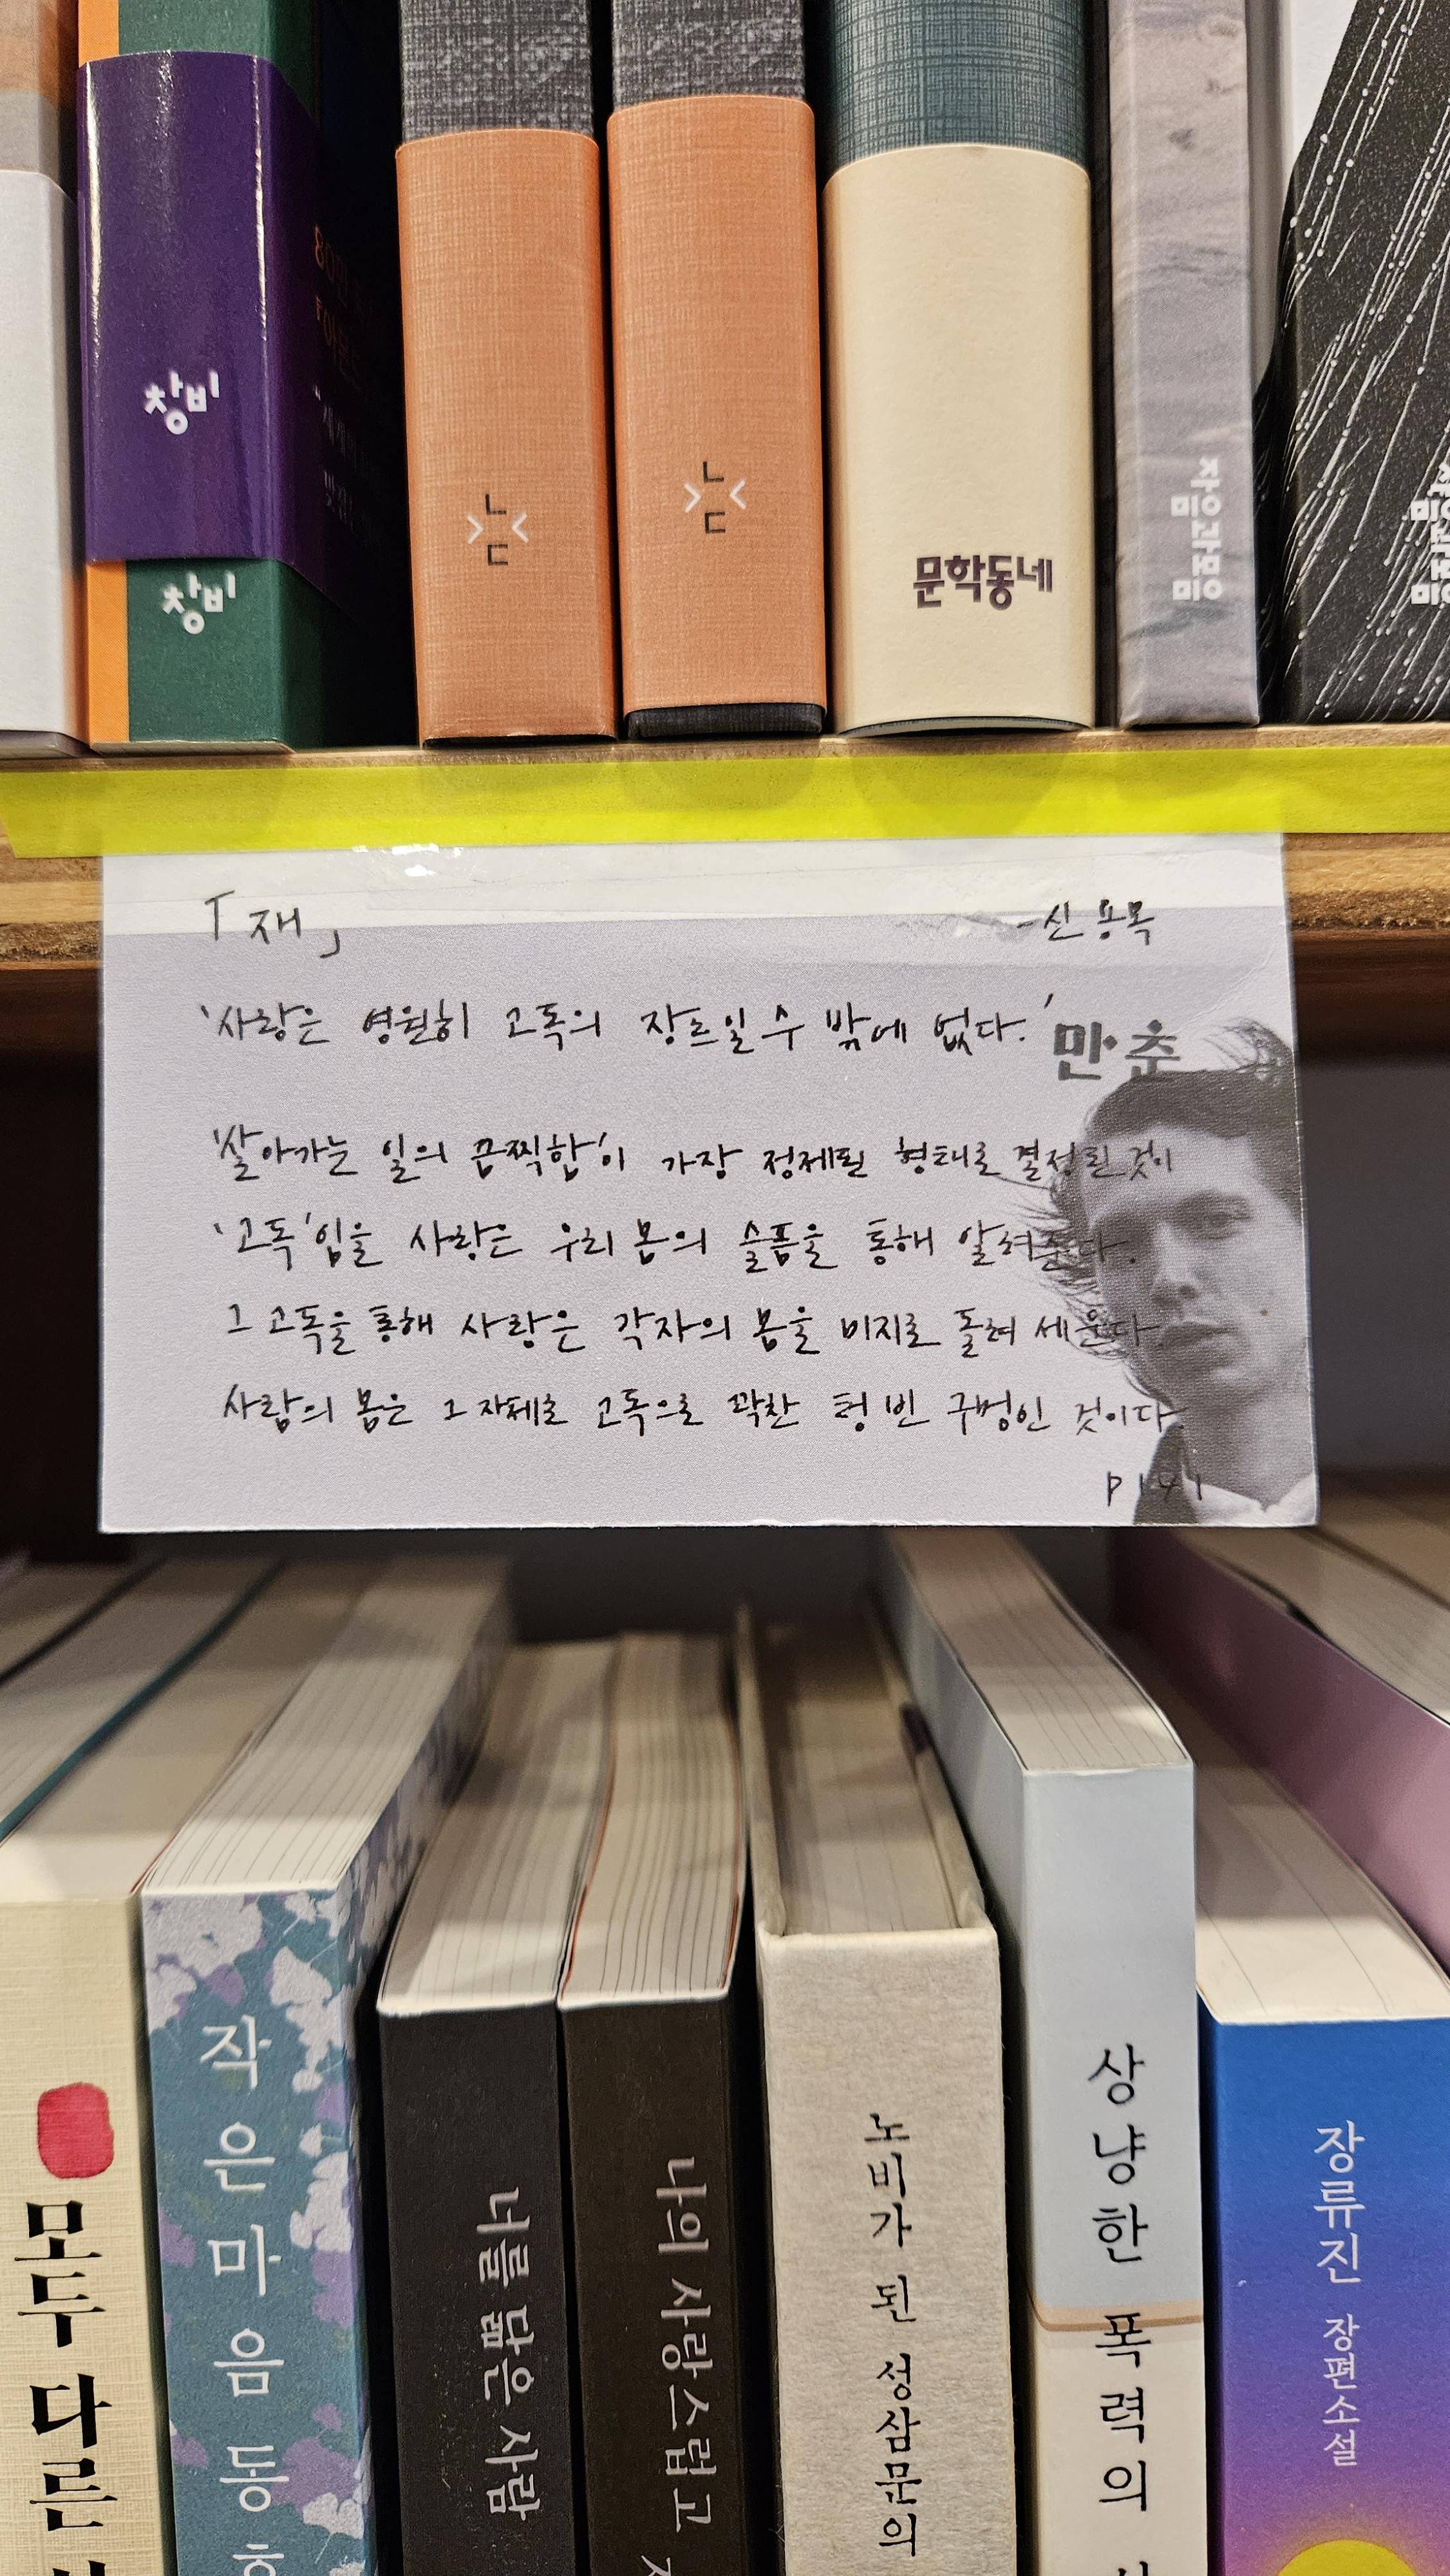 창비
창비
ㄴ
ㄷ
ㄴ
ㄷ
문학동네
자음과모음
자음과모음
「재」 -신용목
'사랑은 영원히 고독의 장르일 수 밖에 없다.'
만·춘
'살아가는 일의 끔찍함'이 가장 정제된 형태로 결정된 것이
'고독'임을 사랑은 우리 몸의 슬픔을 통해 알려준다.
그 고독을 통해 사랑은 각자의 몸을 미지로 돌려 세운다.
사람의 몸은 그 자체로 고독으로 꽉찬 텅 빈 구멍인 것이다.
p141
모두 다른
작은 마음 동
너를 닮은 사람
나의 사랑스럽고
노비가 된 성삼문의
상냥한 폭력의
장류진 장편소설